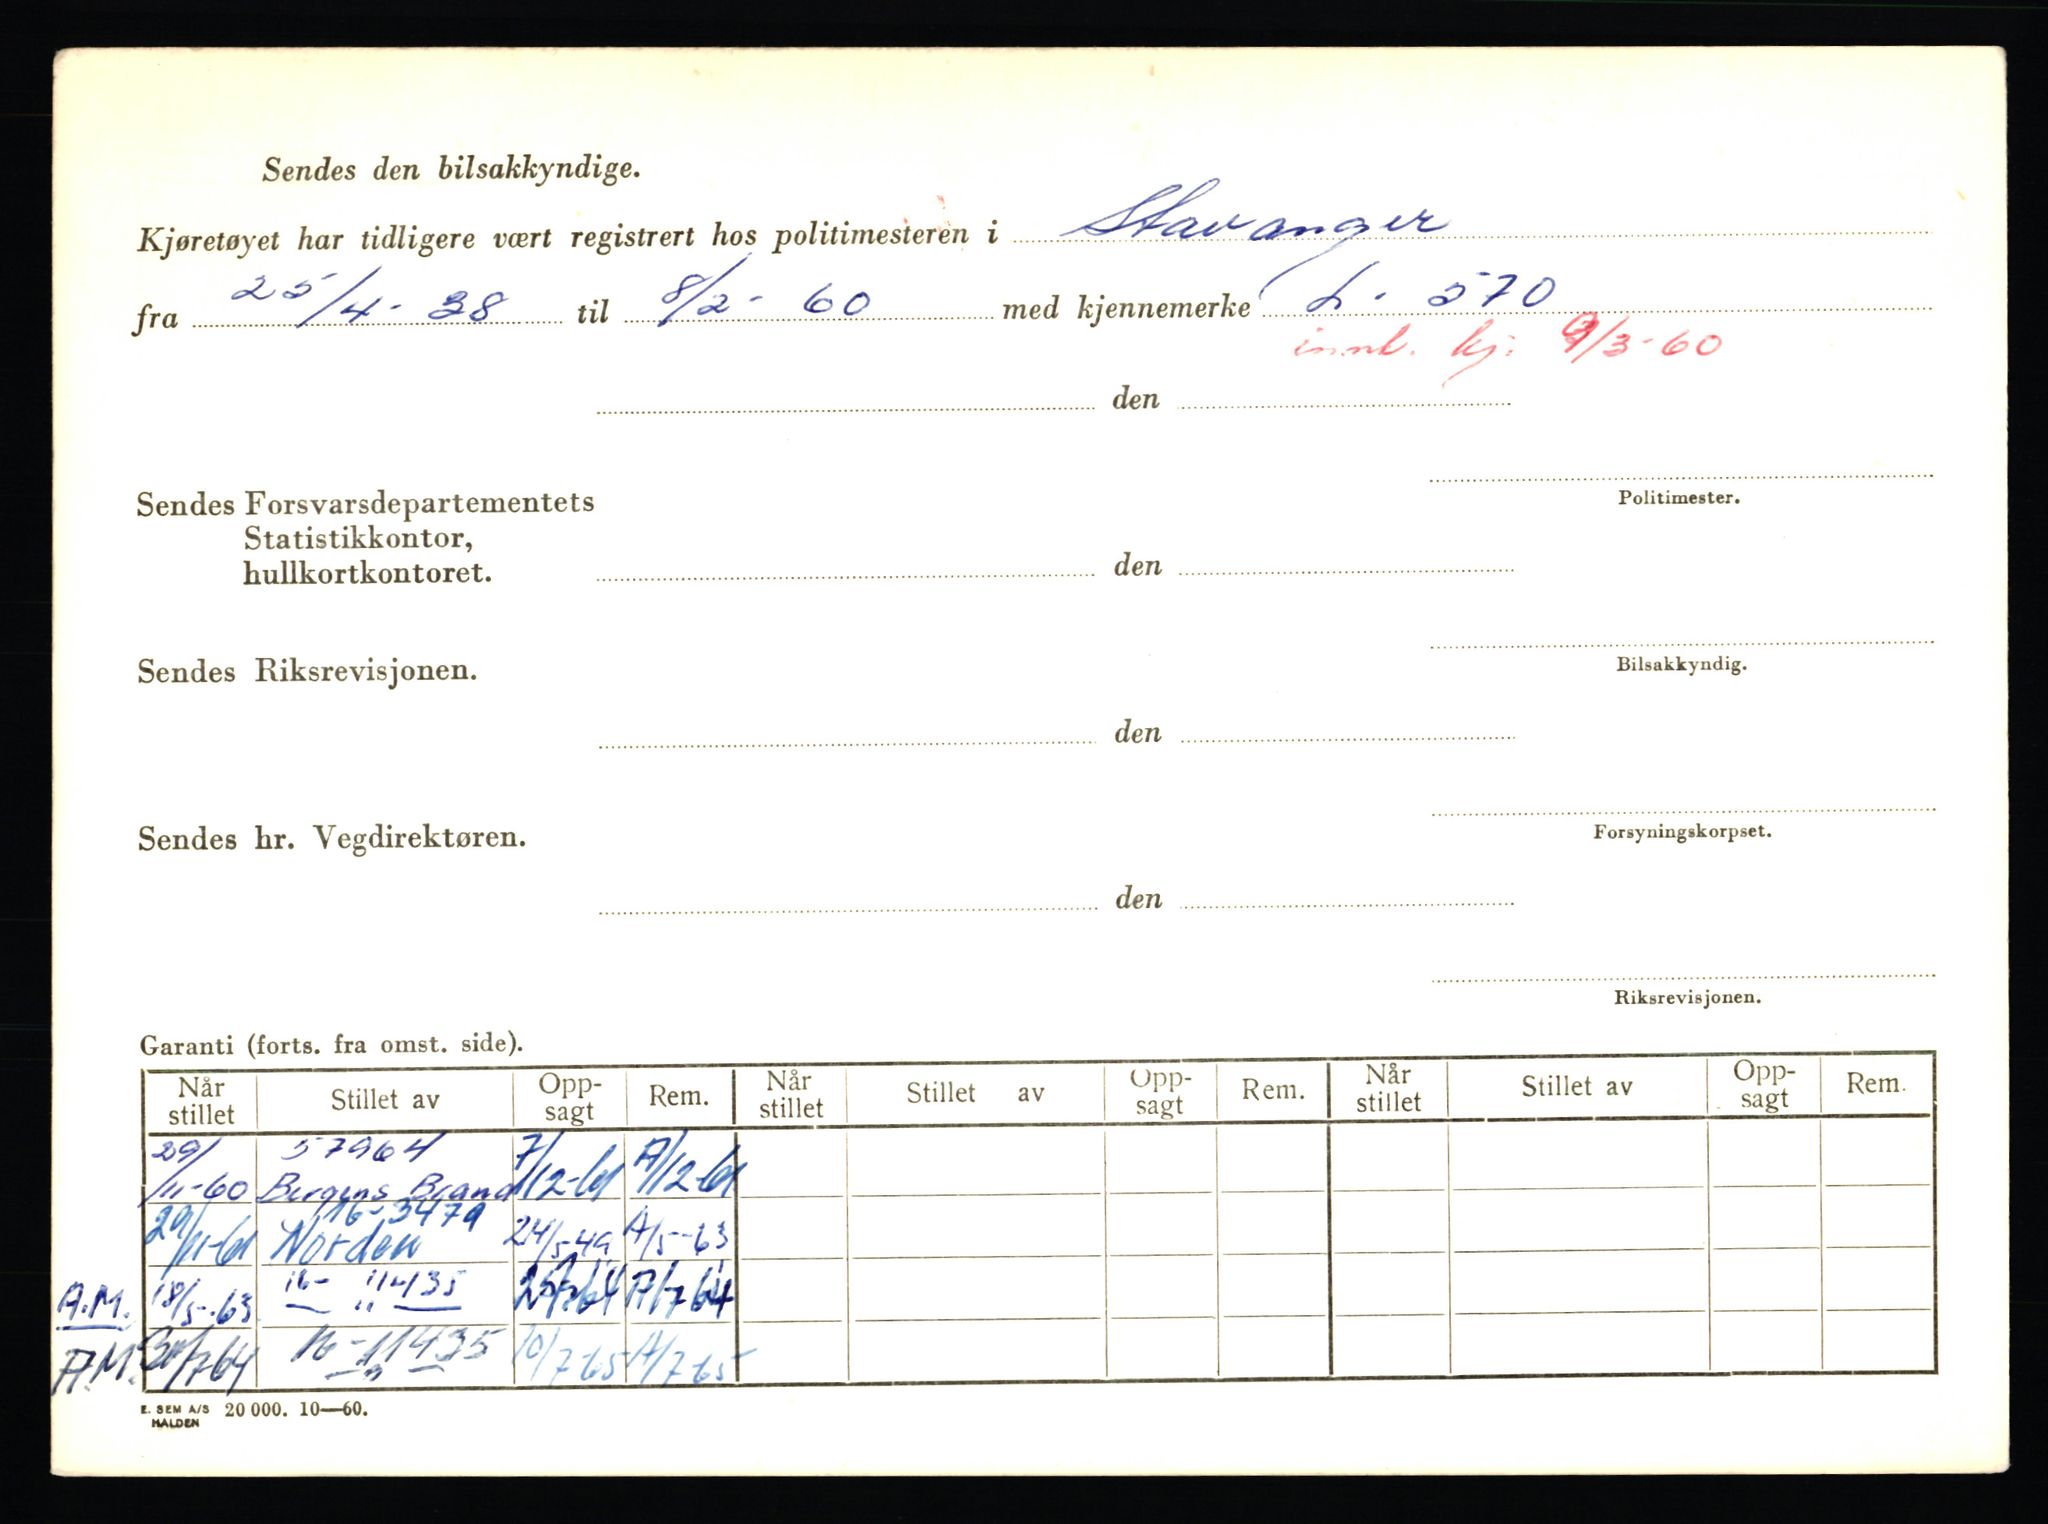 Sendes den bilsakkyndige.
Kjøretøyet har tidligere vært registrert hos politimesteren i Stavanger
fra 25/4-38 til 8/2-60 med kjennemerke L-570
innl. kj: 9/3-60
den
Politimester.
Sendes Forsvarsdepartementets
Statistikkontor,
hullkortkontoret.
den
Bilsakkyndig.
Sendes Riksrevisjonen.
den
Forsyningskorpset.
Sendes hr. Vegdirektøren.
den
Riksrevisjonen.
Garanti (forts. fra omst. side).
Når stillet Stillet av Opp-sagt Rem. Når stillet Stillet av Opp-sagt Rem. Når stillet Stillet av Opp-sagt Rem.
29/11-60 57964 Bergens Brand 7/12-61 A/12-61
29/11-61 16-3479 Norden 24/5-49 A/5-63
A.M. 18/5-63 16- 11435 " 25/7-64 A/7-64
A.M. 30/7-64 16-11435 " 10/7-65 A/7-65
E. SEM A/S HALDEN 20 000. 10—60.